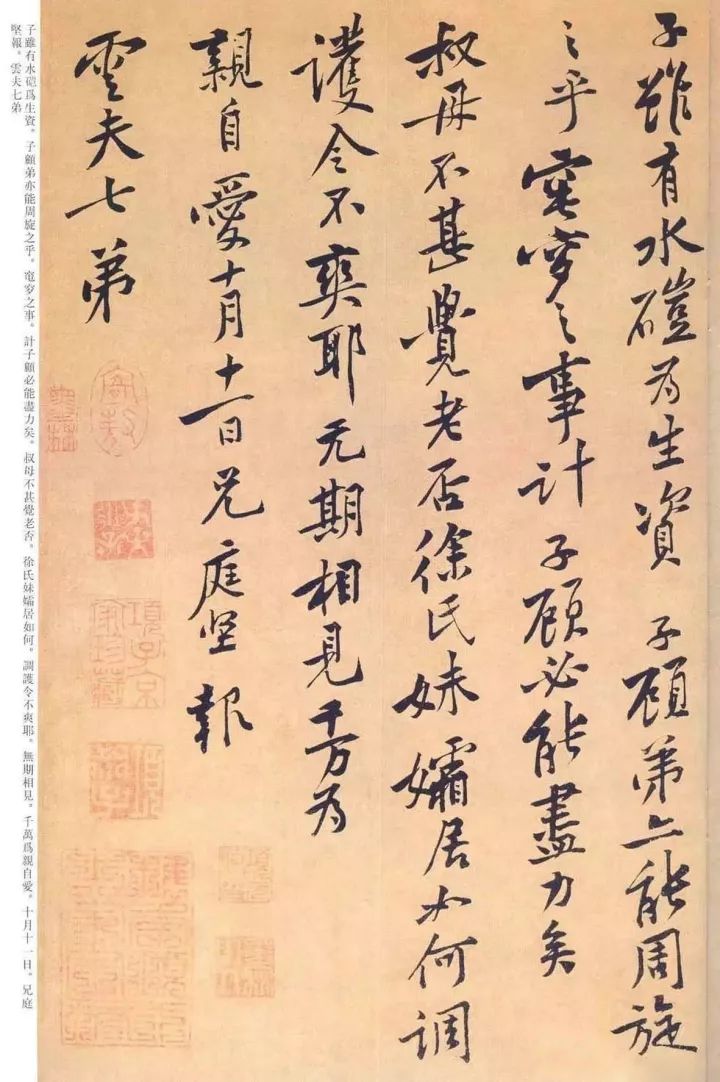 子雖有水磑为生資 子顧弟亦能周旋
之乎窀穸之事計 子顧必能盡力矣
叔母不甚覺老否徐氏妹孀居如何調
護令不爽耶无期相見千万为
親自愛十月十一日兄庭坚報
雲夫七弟
項子京家珍藏
子雖有水磑爲生資。子顧弟亦能周旋之乎。窀穸之事。計子顧必能盡力矣。叔母不甚覺老否。徐氏妹孀居如何。調護令不爽耶。無期相見。千萬爲親自愛。十月十一日。兄庭
堅報。雲夫七弟